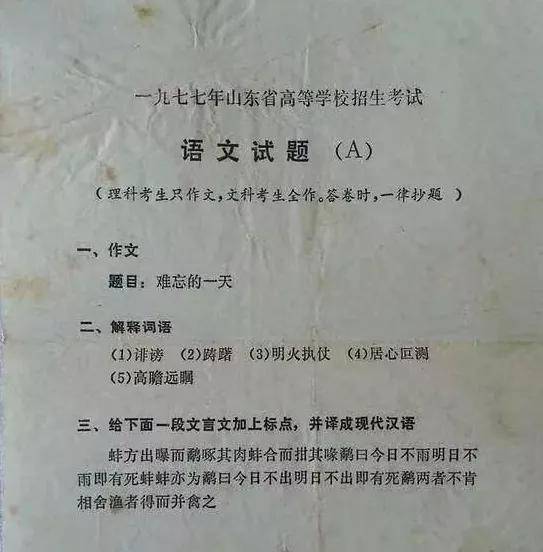 一九七七年山东省高等学校招生考试
语文试题（A）
（理科考生只作文，文科考生全作。答卷时，一律抄题 ）
一、作文
题目：难忘的一天
二、解释词语
(1)诽谤 (2)踌躇 (3)明火执仗 (4)居心叵测
(5)高瞻远瞩
三、给下面一段文言文加上标点，并译成现代汉语
蚌方出曝而鹬啄其肉蚌合而拑其喙鹬曰今日不雨明日不
雨即有死蚌蚌亦为鹬曰今日不出明日不出即有死鹬两者不肯
相舍渔者得而并禽之